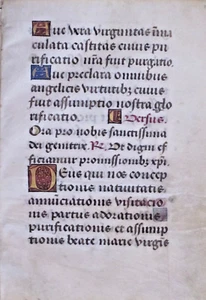 Aue vera virginitas īma
culata castitas cuius pu
rificatio nr̄a fuit purgatio
Aue preclara omnibus
angelicis virtutibꝫ cuius
fuit assumptio nostra glo
rificatio. Versus.
Ora pro nobis sanctissima
dei genitrix. R̄. Vt digni ef
ficiamur promissionibꝫ xp̄i.
Deus qui nos concep
tionis natiuitatis
annūciationis visitacio
nis partus adorationis
purificationis et assump
tionis beate marie virgīs